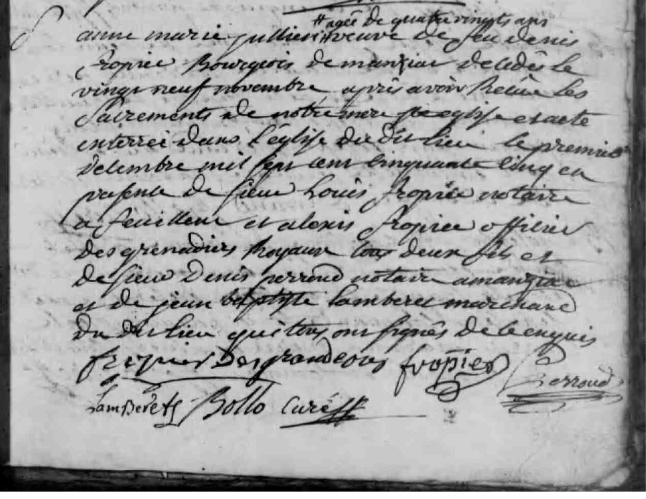 #agée de quatre vingts ans
anne marie jullien # veuve de feu denis
fropier Bourgeois de manziat decedés le
vingt neuf novembre après avoir Recüe les
Sacrements de notre mere Ste eglise et a eté
enterrée dans l'église du dit lieu le premier
decembre mil sept cent cinquante cinq en
presence de sieur Louis fropier notaire
a feuillens et alexis fropier officier
des grenadiers Royaux tous deux fils et
de sieur Denis perroud notaire a manziat
et de jean baptiste lamberet marchand
du dit lieu qui tous ont signés de ce enquis
fropier Desgrandcours fropier Perroud
Lamberet Bollo curé